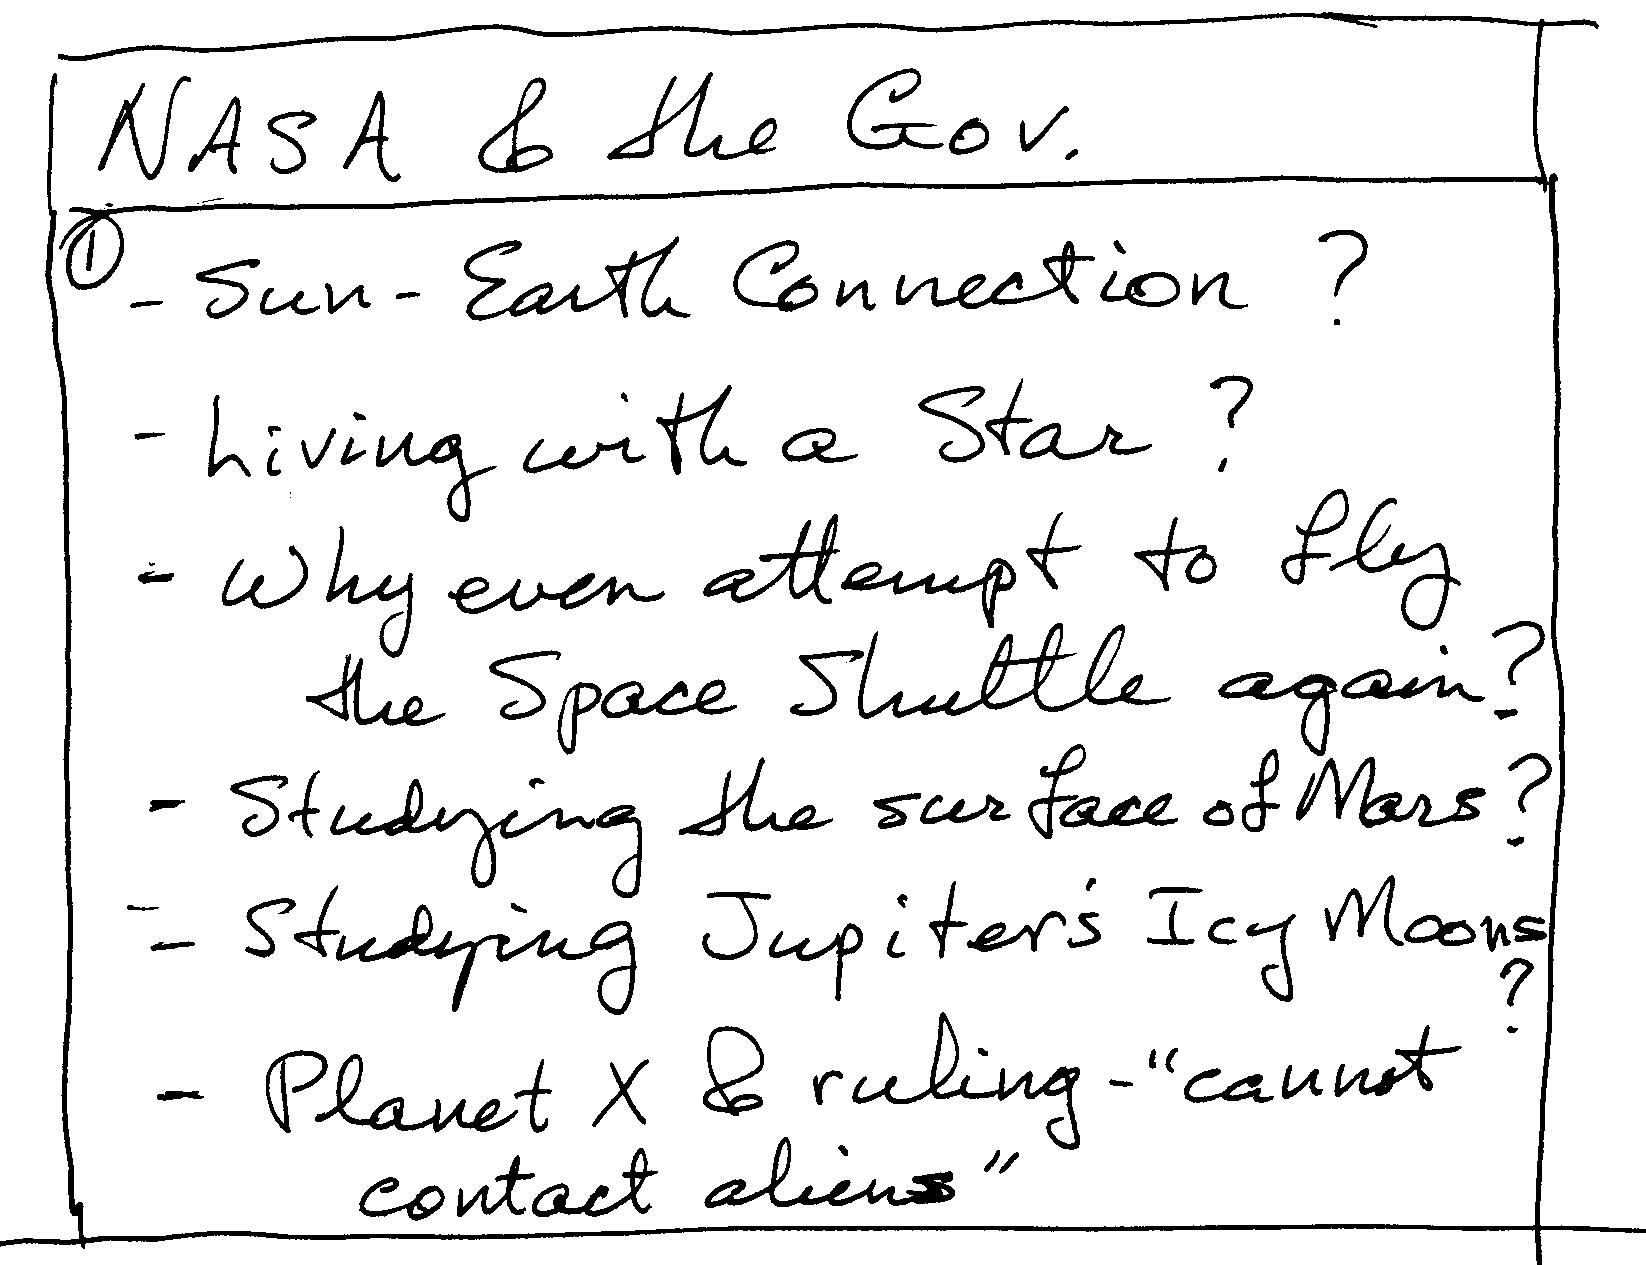 NASA & the Gov.
① - Sun-Earth Connection ?
- Living with a Star ?
- Why even attempt to fly
the Space Shuttle again?
- Studying the surface of Mars?
- Studying Jupiter's Icy Moons
?
- Planet X & ruling - "cannot
contact aliens"